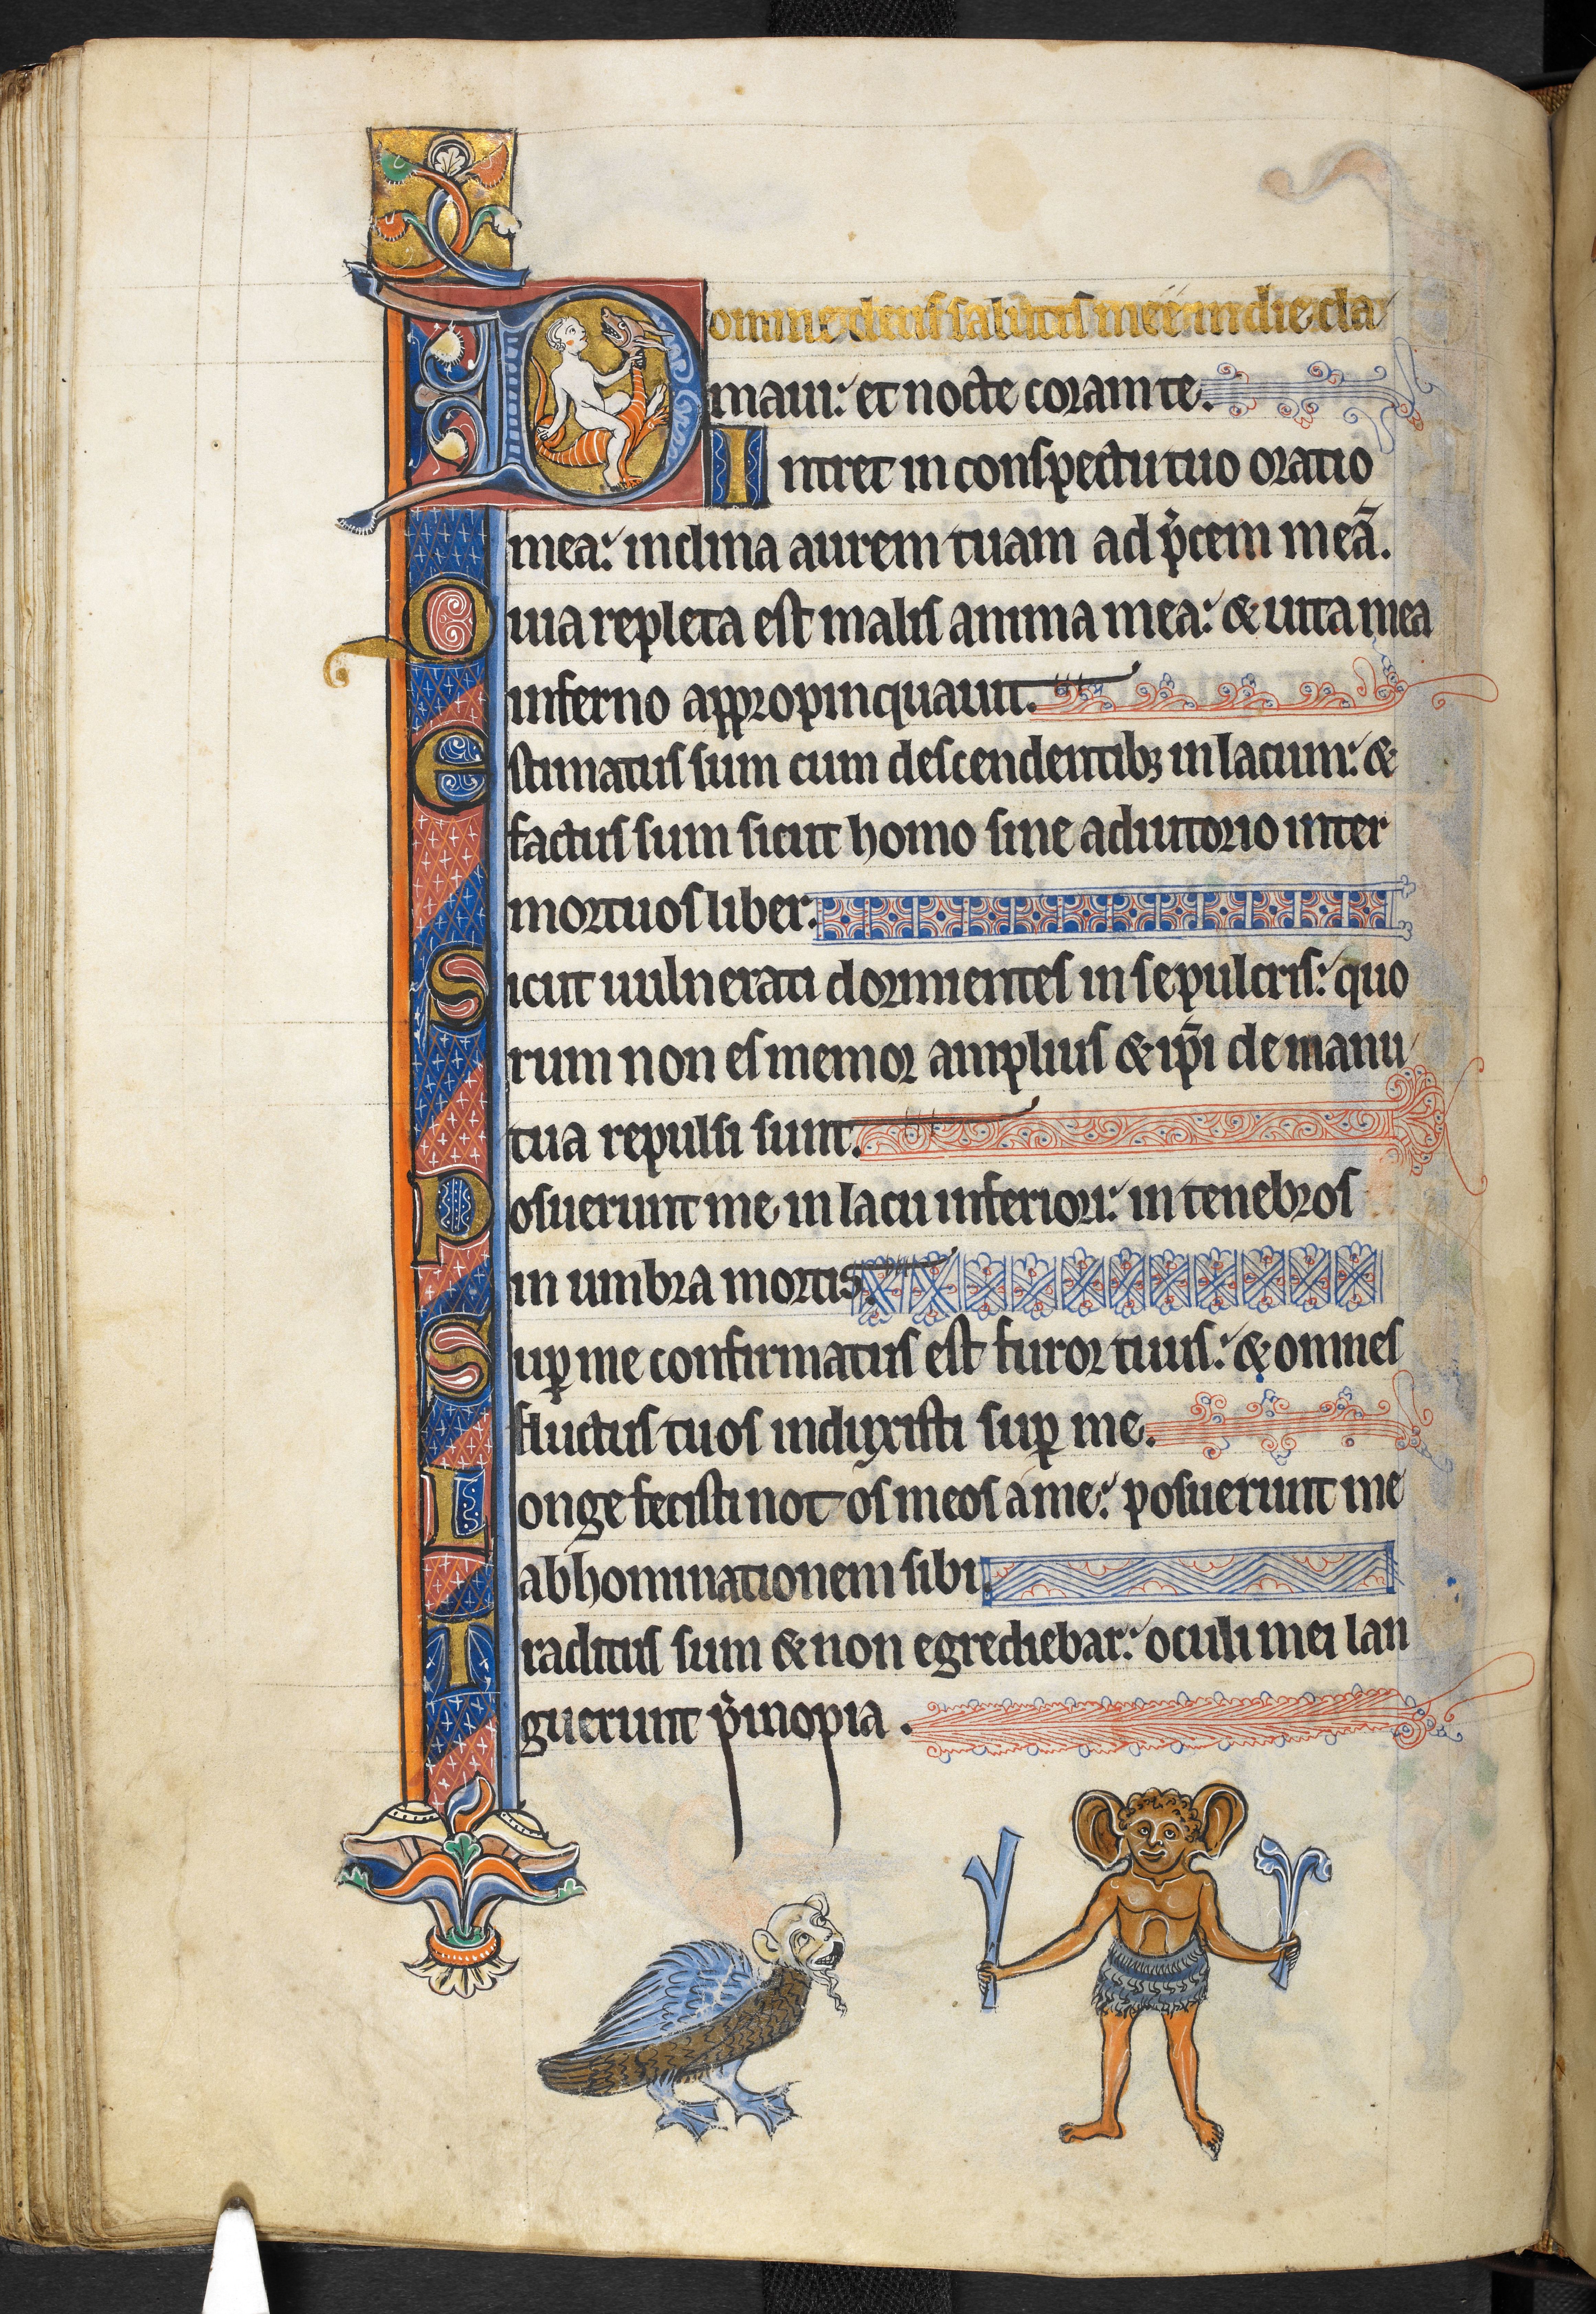 Domine deus salutis meę in die cla
maui: et nocte coram te.
Intret in conspectu tuo oratio
mea: inclina aurem tuam ad p̄cem meā.
Quia repleta est malis anima mea: & uita mea
inferno appropinquauit.
Estimatus sum cum descendentibꝫ in lacum: &
factus sum sicut homo sine adiutorio inter
mortuos liber.
Sicut uulnerati dormientes in sepulcris: quo
rum non es memor amplius & ip̄i de manu
tua repulsi sunt.
Posuerunt me in lacu inferiori: in tenebros
in umbra mortis.
Suꝑ me confirmatus est furor tuus: & omnes
fluctus tuos induxisti suꝑ me.
Longe fecisti not os meos a me: posuerunt me
abhominationem sibi.
Traditus sum & non egrediebar: oculi mei lan
guerunt p̄ inopia.